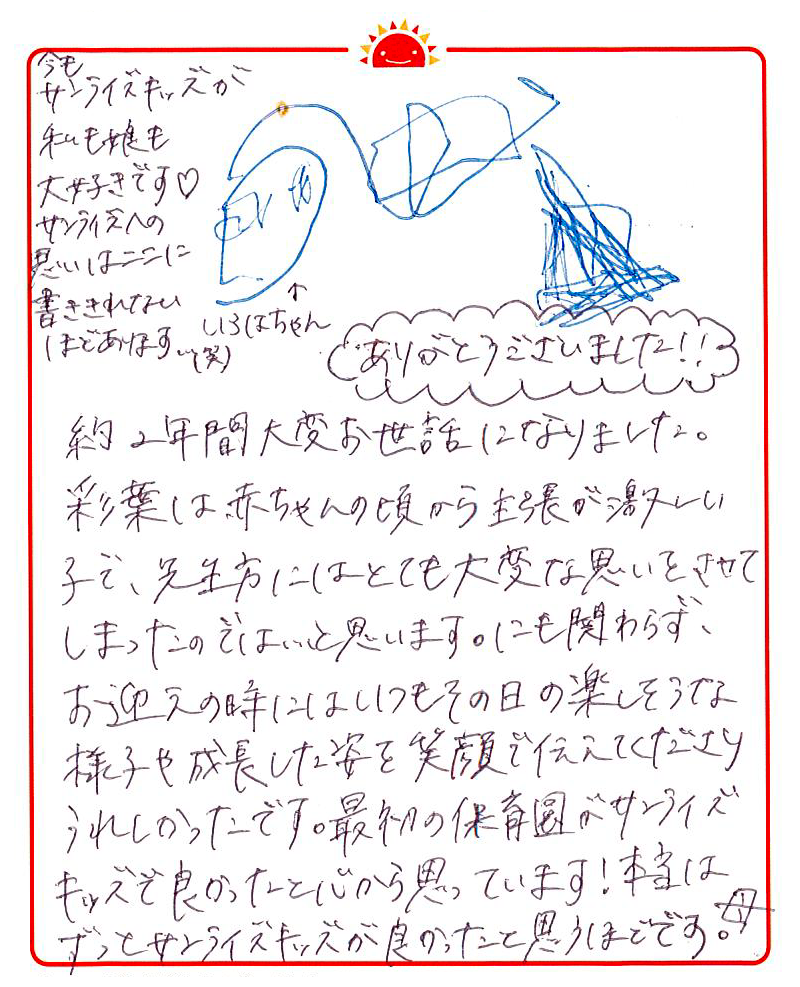 今も
サンライズキッズが
私も娘も
大好きです♡
サンライズへの
思いはここに
書ききれない
ほどあります…(笑)
↑
いろはちゃん
ありがとうございました!!
約2年間大変お世話になりました。
彩葉は赤ちゃんの頃から主張が激しい
子で、先生方にはとても大変な思いをさせて
しまったのでは…と思います。にも関わらず、
お迎えの時にはいつもその日の楽しそうな
様子や成長した姿を笑顔で伝えてくださり
うれしかったです。最初の保育園がサンライズ
キッズで良かったと心から思っています!本当は
ずっとサンライズキッズが良かったと思うほどです。母